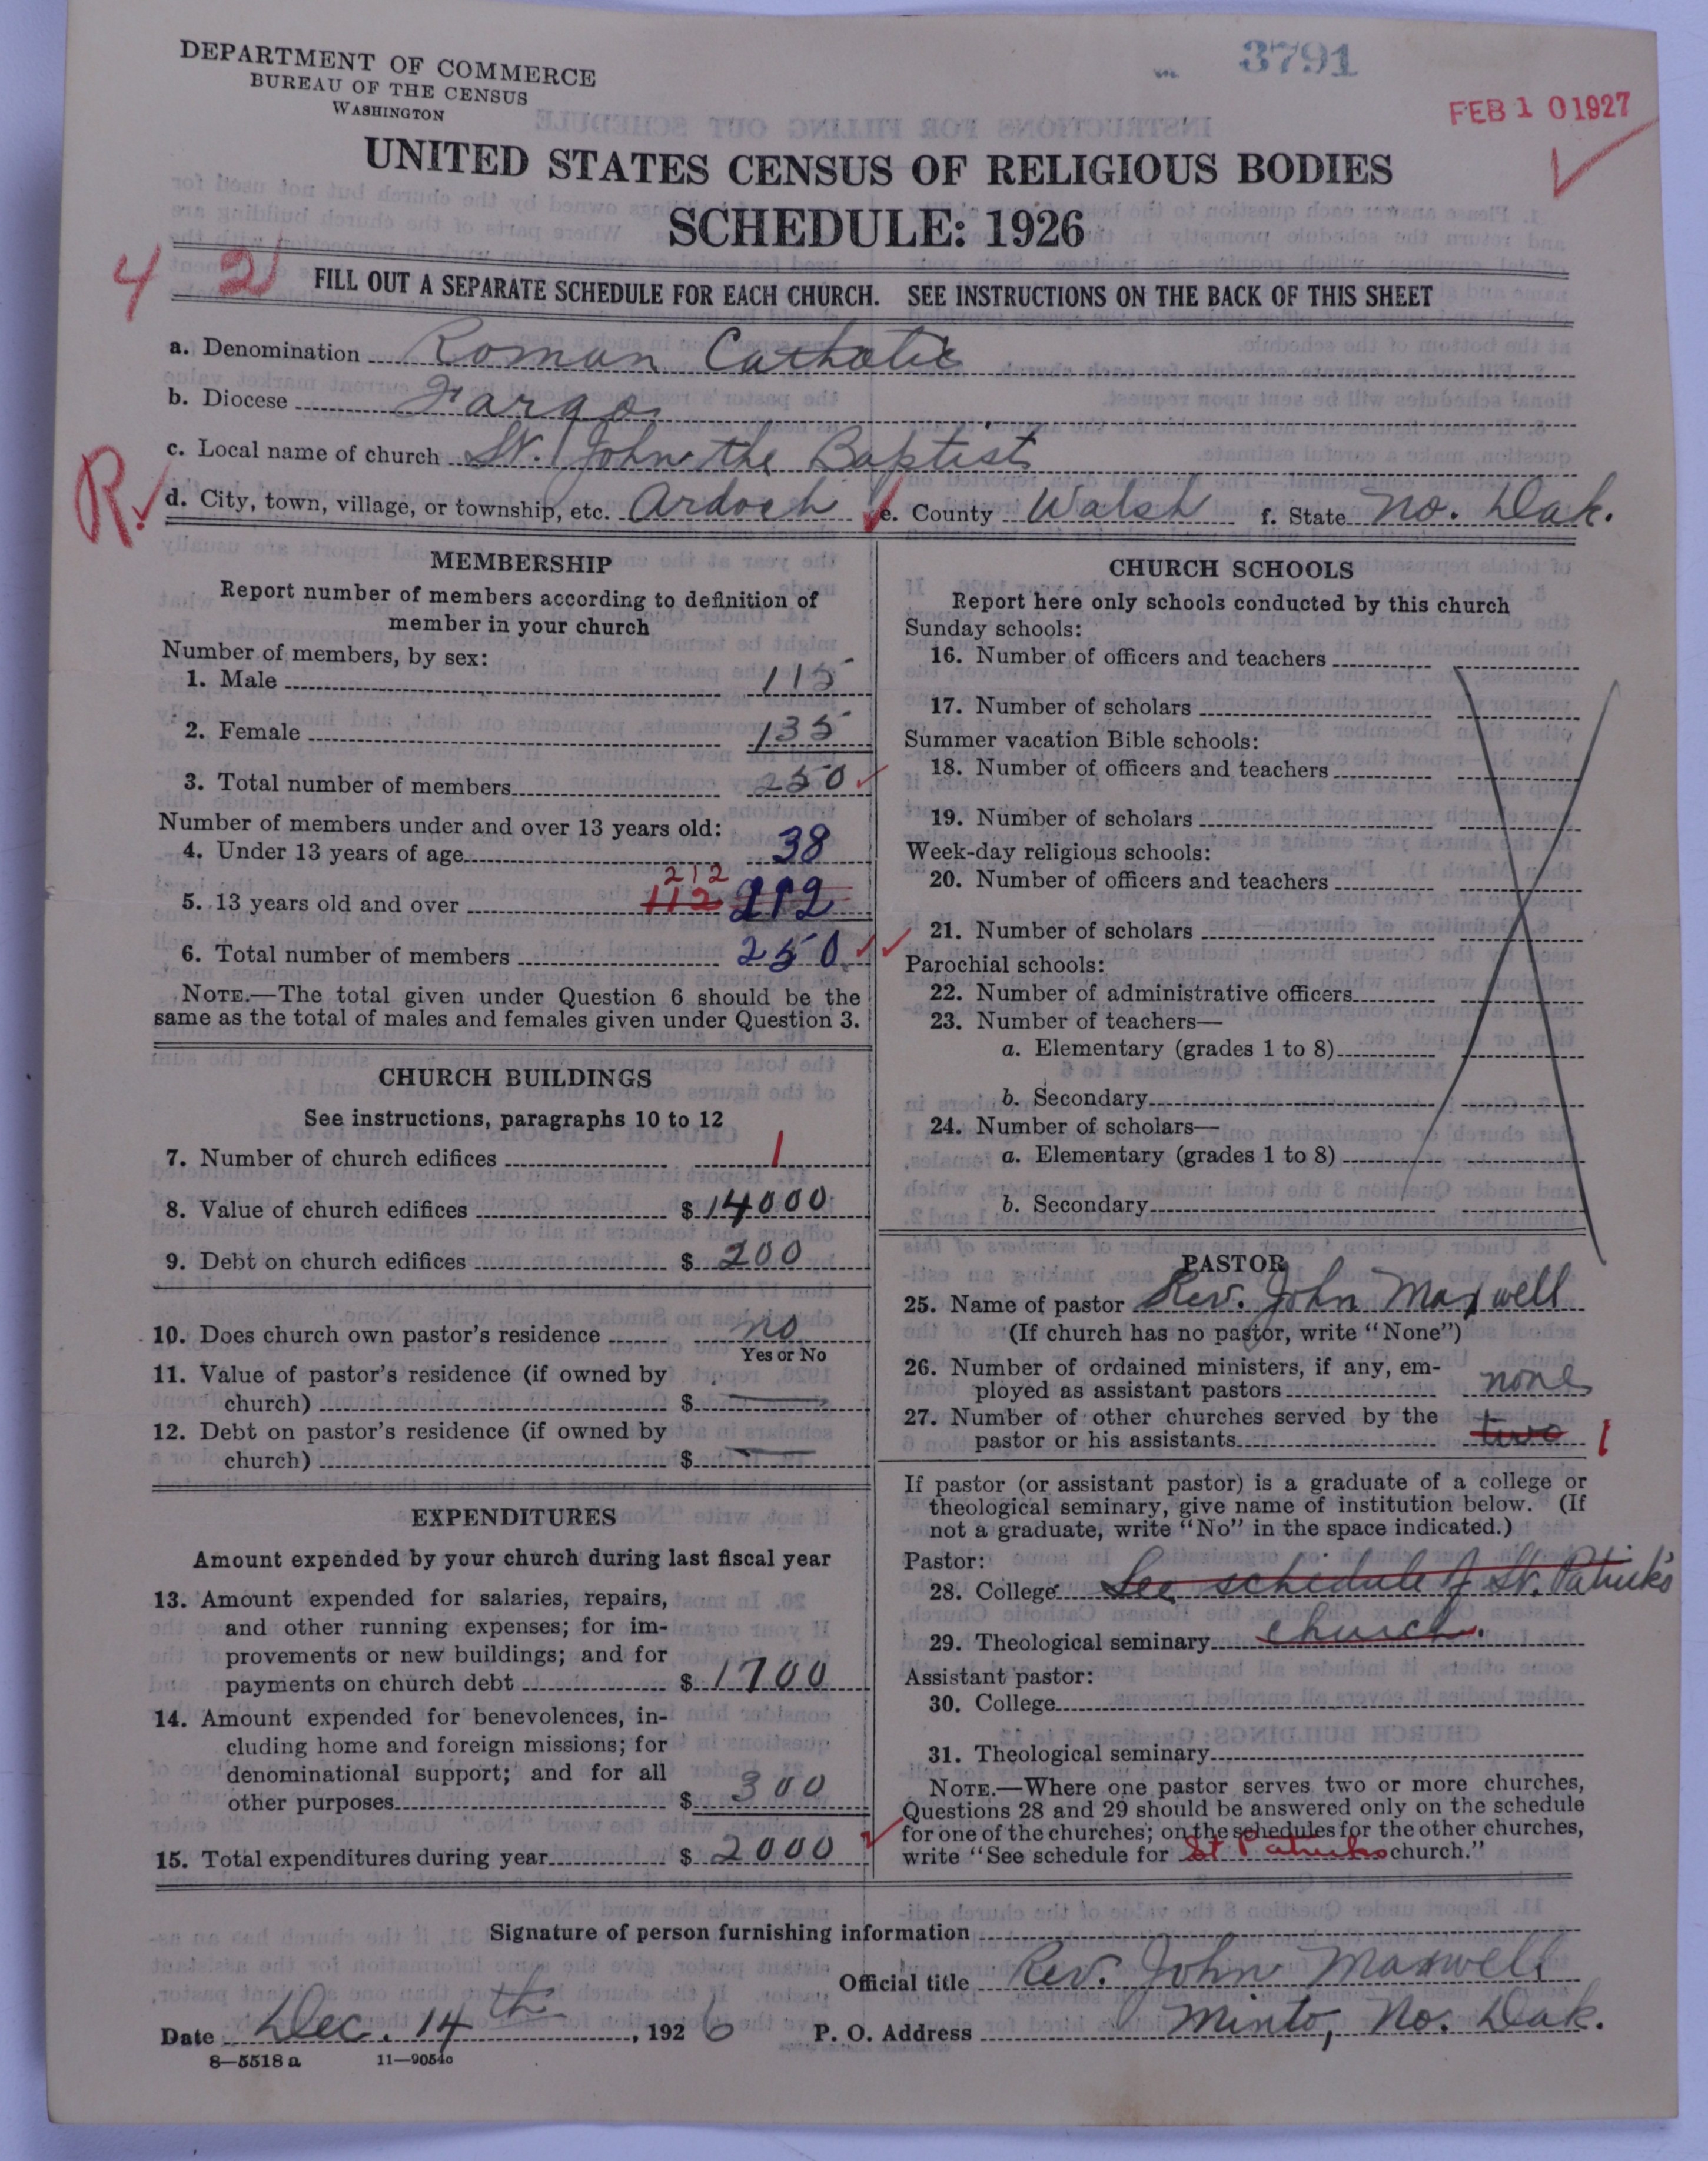 DEPARTMENT OF COMMERCE
BUREAU OF THE CENSUS
WASHINGTON
3791
FEB 10 1927
UNITED STATES CENSUS OF RELIGIOUS BODIES
SCHEDULE: 1926
4 2
FILL OUT A SEPARATE SCHEDULE FOR EACH CHURCH. SEE INSTRUCTIONS ON THE BACK OF THIS SHEET
a. Denomination Roman Catholic
b. Diocese Fargo
c. Local name of church St. John the Baptist
R.
d. City, town, village, or township, etc. Ardoch e. County Walsh f. State No. Dak.
MEMBERSHIP
Report number of members according to definition of
member in your church
Number of members, by sex:
1. Male 115
2. Female 135
3. Total number of members 250
Number of members under and over 13 years old:
4. Under 13 years of age 38
212
5. 13 years old and over 112 212
6. Total number of members 250
NOTE.—The total given under Question 6 should be the
same as the total of males and females given under Question 3.
CHURCH BUILDINGS
See instructions, paragraphs 10 to 12
7. Number of church edifices 1
8. Value of church edifices $ 14000
9. Debt on church edifices $ 200
10. Does church own pastor's residence no
Yes or No
11. Value of pastor's residence (if owned by
church) $
12. Debt on pastor's residence (if owned by
church) $
EXPENDITURES
Amount expended by your church during last fiscal year
13. Amount expended for salaries, repairs,
and other running expenses; for im-
provements or new buildings; and for
payments on church debt $ 1700
14. Amount expended for benevolences, in-
cluding home and foreign missions; for
denominational support; and for all
other purposes $ 300
15. Total expenditures during year $ 2000
CHURCH SCHOOLS
Report here only schools conducted by this church
Sunday schools:
16. Number of officers and teachers
17. Number of scholars
Summer vacation Bible schools:
18. Number of officers and teachers
19. Number of scholars
Week-day religious schools:
20. Number of officers and teachers
21. Number of scholars
Parochial schools:
22. Number of administrative officers
23. Number of teachers—
a. Elementary (grades 1 to 8)
b. Secondary
24. Number of scholars—
a. Elementary (grades 1 to 8)
b. Secondary
PASTOR
25. Name of pastor Rev. John Maxwell
(If church has no pastor, write "None")
26. Number of ordained ministers, if any, em-
ployed as assistant pastors none
27. Number of other churches served by the
pastor or his assistants two 1
If pastor (or assistant pastor) is a graduate of a college or
theological seminary, give name of institution below. (If
not a graduate, write "No" in the space indicated.)
Pastor:
28. College See schedule of St. Patrick's
29. Theological seminary church.
Assistant pastor:
30. College
31. Theological seminary
NOTE.—Where one pastor serves two or more churches,
Questions 28 and 29 should be answered only on the schedule
for one of the churches; on the schedules for the other churches,
write "See schedule for St Patricks church."
Signature of person furnishing information
Official title Rev. John Maxwell
Date Dec. 14th, 1926 P. O. Address Minto, No. Dak.
8—5518 a 11—9054c